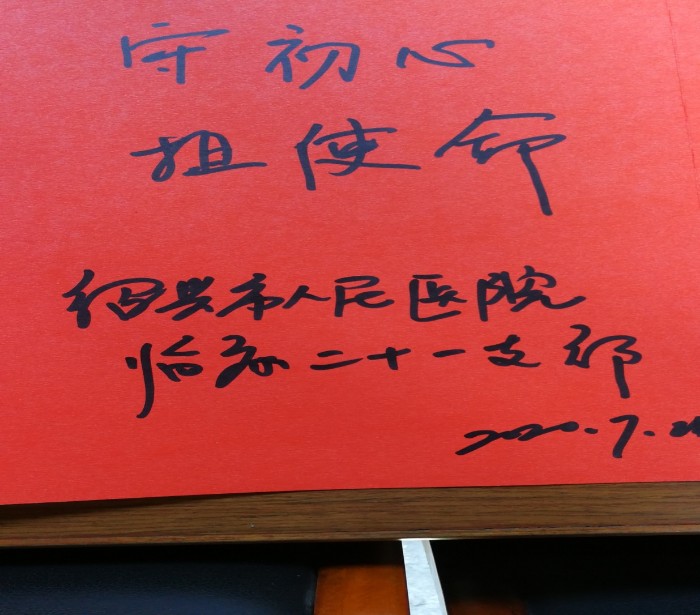 守初心
担使命
绍兴市人民医院
二十一支部
2020.7.